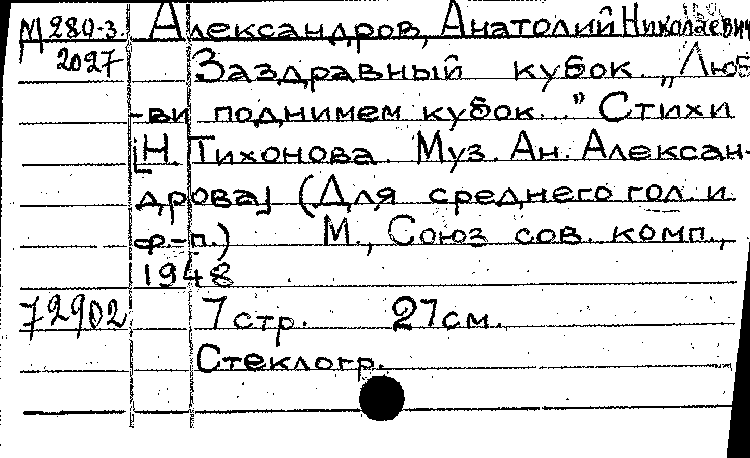 М 280-3. Александров, Анатолий Николаевич
2027 Заздравный кубок. „Люб-
-ви поднимем кубок..." Стихи
[Н. Тихонова. Муз. Ан. Алексан-
дрова] (Для среднего гол. и
ф.-п.) М., Союз сов. комп.,
1948
72902 7 стр. 27 см.
Стеклогр.